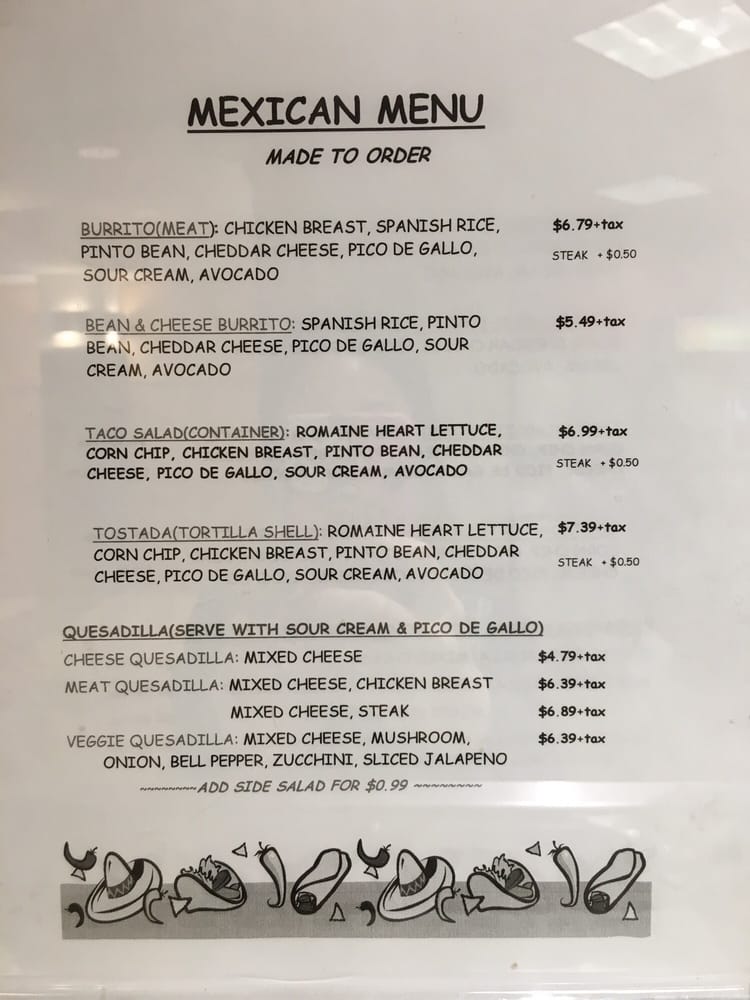 MEXICAN MENU
MADE TO ORDER
BURRITO(MEAT): CHICKEN BREAST, SPANISH RICE, $6.79+tax
PINTO BEAN, CHEDDAR CHEESE, PICO DE GALLO, STEAK +$0.50
SOUR CREAM, AVOCADO
BEAN & CHEESE BURRITO: SPANISH RICE, PINTO $5.49+tax
BEAN, CHEDDAR CHEESE, PICO DE GALLO, SOUR
CREAM, AVOCADO
TACO SALAD(CONTAINER): ROMAINE HEART LETTUCE, $6.99+tax
CORN CHIP, CHICKEN BREAST, PINTO BEAN, CHEDDAR STEAK +$0.50
CHEESE, PICO DE GALLO, SOUR CREAM, AVOCADO
TOSTADA(TORTILLA SHELL): ROMAINE HEART LETTUCE, $7.39+tax
CORN CHIP, CHICKEN BREAST, PINTO BEAN, CHEDDAR STEAK +$0.50
CHEESE, PICO DE GALLO, SOUR CREAM, AVOCADO
QUESADILLA(SERVE WITH SOUR CREAM & PICO DE GALLO)
CHEESE QUESADILLA: MIXED CHEESE $4.79+tax
MEAT QUESADILLA: MIXED CHEESE, CHICKEN BREAST $6.39+tax
MIXED CHEESE, STEAK $6.89+tax
VEGGIE QUESADILLA: MIXED CHEESE, MUSHROOM, $6.39+tax
ONION, BELL PEPPER, ZUCCHINI, SLICED JALAPENO
~~~~~~~~ADD SIDE SALAD FOR $0.99 ~~~~~~~~~